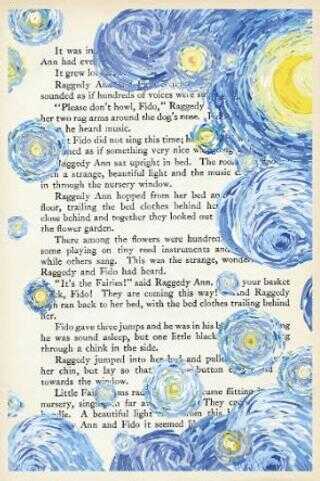 It was in
Ann had eve
It grew lo
Raggedy Ann
sounded as if hundreds of voices were su
"Please don't howl, Fido," Raggedy
her two rag arms around the dog's nose.
he heard music.
Fido did not sing this time; h
ned as if something very nice w
aggedy Ann sat upright in bed. The roo
a strange, beautiful light and the music
in through the nursery window.
Raggedy Ann hopped from her bed an
floor, trailing the bed clothes behind he
close behind and together they looked out
the flower garden.
There among the flowers were hundred
some playing on tiny reed instruments and
while others sang. This was the strange, wonde
Raggedy and Fido had heard.
"It's the Fairies!" said Raggedy Ann, your basket
k, Fido! They are coming this way! d Raggedy
n ran back to her bed, with the bed clothes trailing behind
her.
Fido gave three jumps and he was in his b ng
he was sound asleep, but one little black
through a chink in the side.
Raggedy jumped into her bed and pulle
her chin, but lay so that button
towards the window.
Little Fai rad came flitting
nursery, singi far a They co
dle. A beautiful light from this
Ann and Fido it seemed li